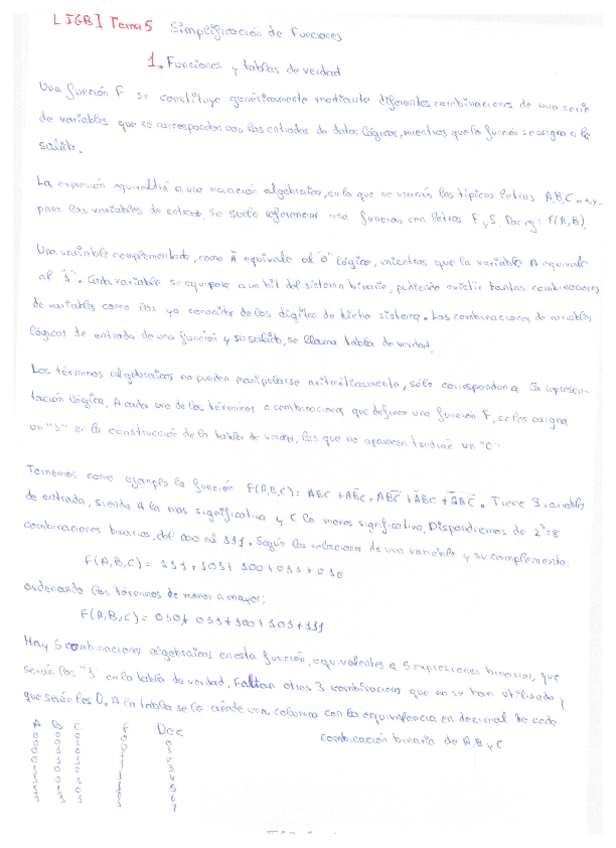 [IGB] Tema 5 Simplificación de Funciones
1. Funciones y tablas de verdad
Una función F se constituye genéricamente mediante diferentes combinaciones de una serie
de variables que se corresponden con las entradas de datos lógicos, mientras que la función se asigna a la
salida.
La expresión equivaldrá a una ecuación algebraica, en la que se usarán las típicas letras A,B,C
para las variables de entrada. Se suele referenciar una función con letras F y S. Por ej: F(A,B).
Una variable complementada, como Ā equivale al "0" lógico, mientras que la variable A equivale
al "1". Cada variable se equipara a un bit del sistema binario, pudiendo existir tantas combinaciones
de variables como las ya conocidas de los dígitos de dicho sistema. Las combinaciones de variables
lógicas de entrada de una función y su salida, se llama tabla de verdad.
Los términos algebraicos no pueden manipularse aritméticamente, sólo corresponden a la represen-
tación lógica. A cada uno de los términos o combinaciones que definen una función F, se les asigna
un "1" en la construcción de la tabla de verdad, las que no aparecen tendrán un "0"
Tomemos como ejemplo la función F(A,B,C) = Tiene 3 variables
de entrada, siendo A la mas significativa y C la menos significativa. Dispondremos de 2³=8
combinaciones binarias, del 000 al 111. Según las relaciones de una variable y su complemento:
F(A,B,C) = 111 + 101 + 100 + 011 + 010
ordenando los términos de menor a mayor:
F(A,B,C) = 010 + 011 + 100 + 101 + 111
Hay 5 combinaciones algebraicas en esta función, equivalentes a 5 expresiones binarias, que
serán los "1" en la tabla de verdad. Faltan otras 3 combinaciones que no se han utilizado y
que serán los 0. A la tabla se le añade una columna con la equivalencia en decimal de cada
combinación binaria de A,B y C
A B C F Dec